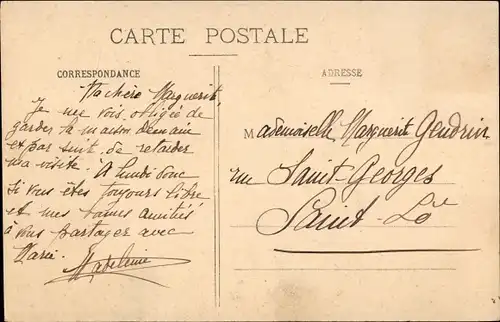 CARTE POSTALE
CORRESPONDANCE
Ma chère Marguerite,
Je me vois obligée de
garder la maison demain
et par suit, de retarder
ma visite. A lundi donc
si vous êtes toujours libre
et mes amitiés
à vous partager avec
Marie.
Madeleine
ADRESSE
Mademoiselle Marguerite Gendrin
rue Saint-Georges
Saint-Lô